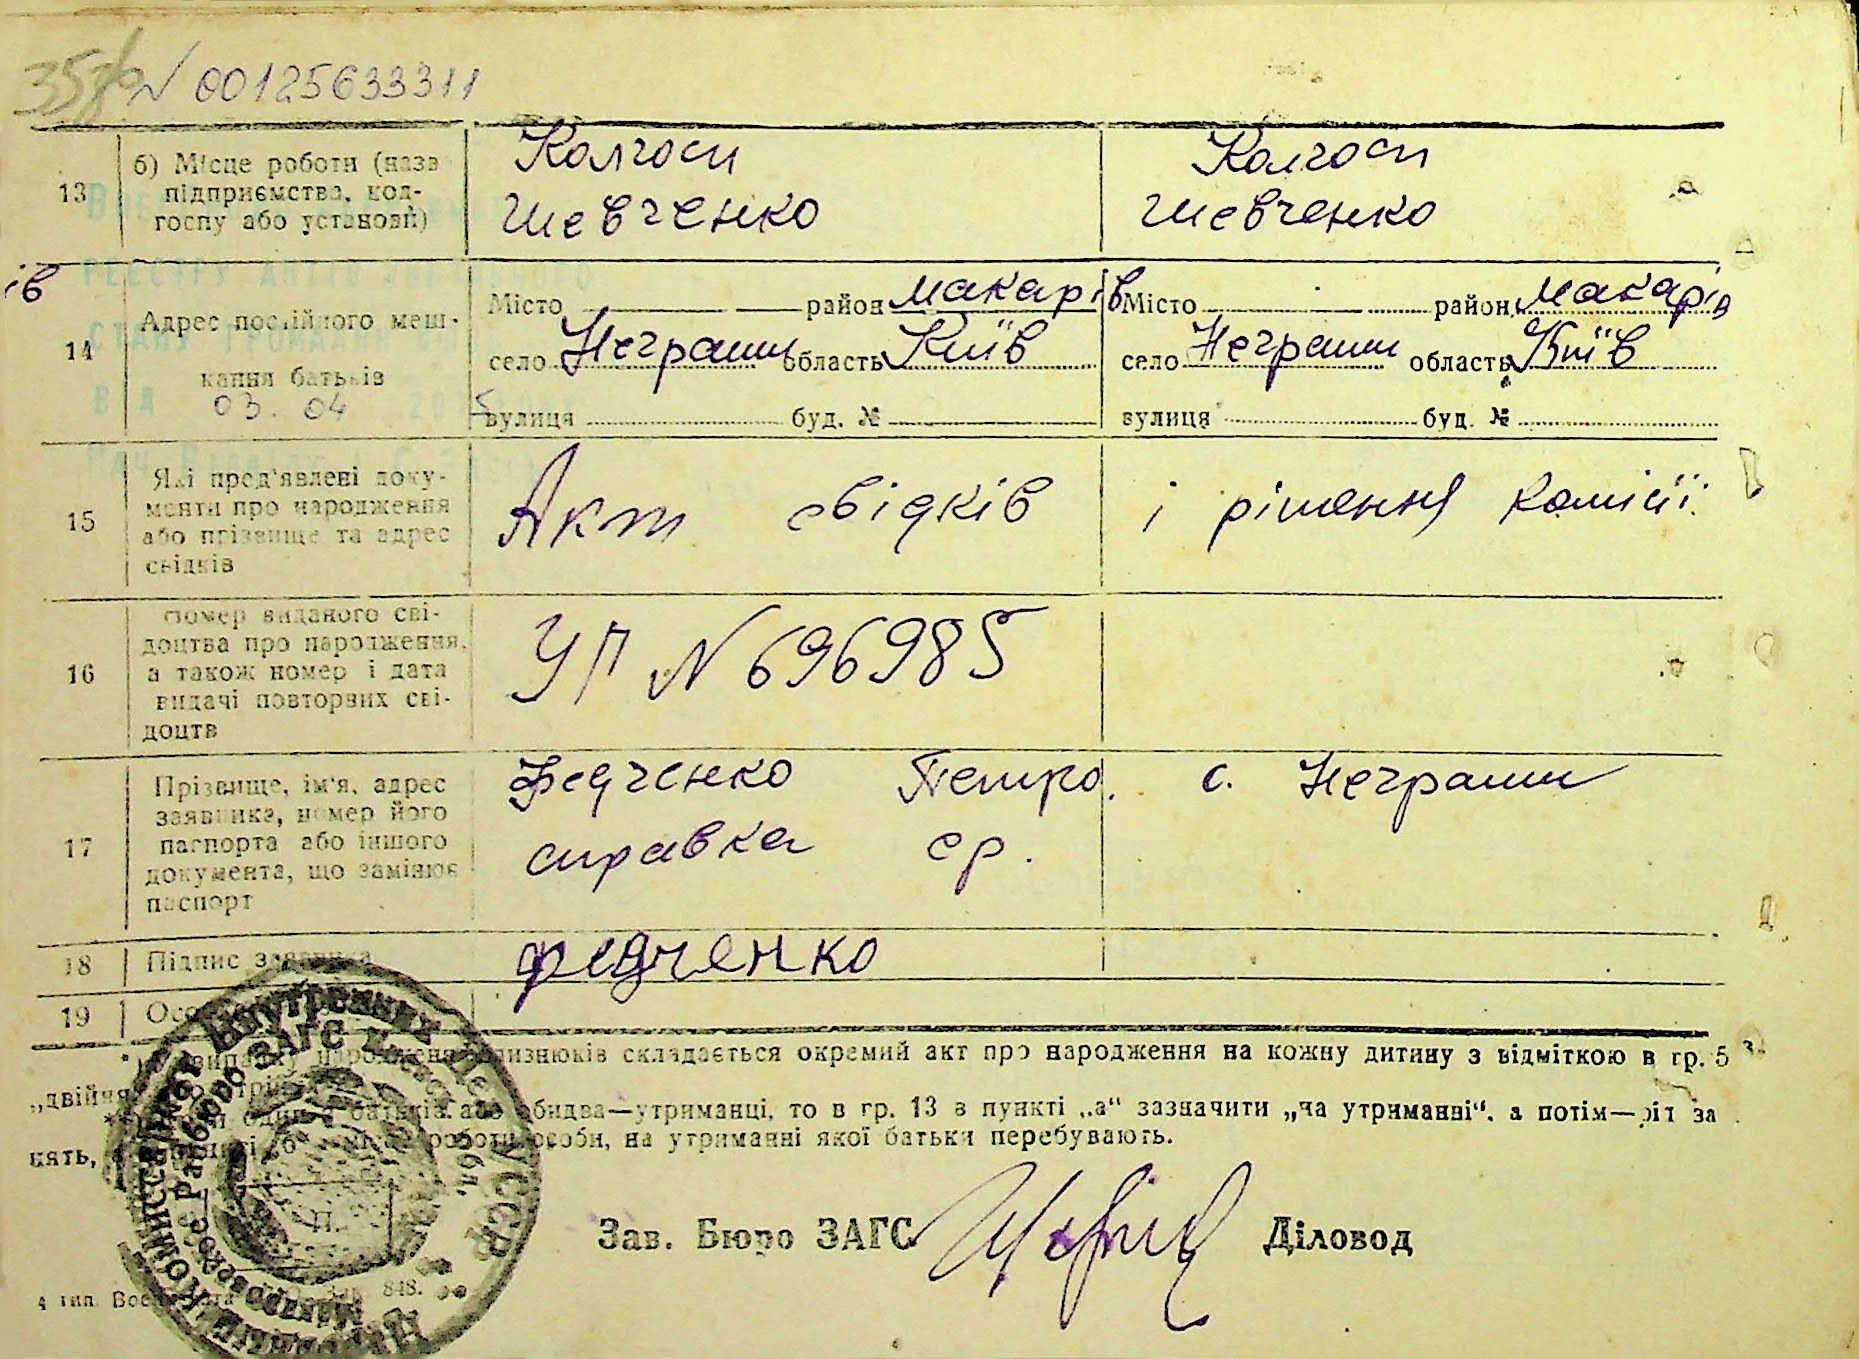 358 N 00125633311
13
б) Місце роботи (назв
підприємства, кол-
госпу або установи)
Колгосп
Шевченко
Колгосп
Шевченко
ів
14
Адрес постійного меш-
кання батьків
03. 04
Місто район Макарів
село Неграши область Київ
вулиця буд. №
Місто район Макарів
село Неграши область Київ
вулиця буд. №
15
Які пред'явлені доку-
менти про народження
або прізвище та адрес
свідків
Акт свідків і рішення комісії.
16
Номер виданого сві-
доцтва про народження,
а також номер і дата
видачі повторних сві-
доцтв
УП N 696985
17
Прізвище, ім'я, адрес
заявника, номер його
паспорта або іншого
документа, що замінює
паспорт
Федченко Петро. с. Неграши
справка ср.
18
Підпис заявника
федченко
19
народження близнюків складається окремий акт про народження на кожну дитину з відміткою в гр. 5
„двійня
батьків або обидва—утриманці, то в гр. 13 в пункті „а“ зазначити „на утриманні“, а потім—рід за
нять, роботи особи, на утриманні якої батьки перебувають.
Зав. Бюро ЗАГС Діловод
4 тип. 848.
Внутренних Дел УССР
Рабюро ЗАГС Киевской обл.